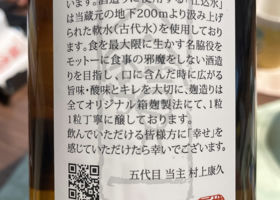 います。酒造りに使用する「仕込水」
は当蔵元の地下200mより汲み上げ
られた軟水(古代水)を使用しており
ます。食を最大限に生かす名脇役を
モットーに食事の邪魔をしない酒造
りを目指し、口に含んだ時に広がる
旨味・酸味とキレを大切に、麹造りは
全てオリジナル箱麹製法にて、1粒
1粒丁寧に醸しております。
飲んでいただける皆様方に「幸せ」を
感じていただけたら幸いでございます。
五代目 当主 村上康久